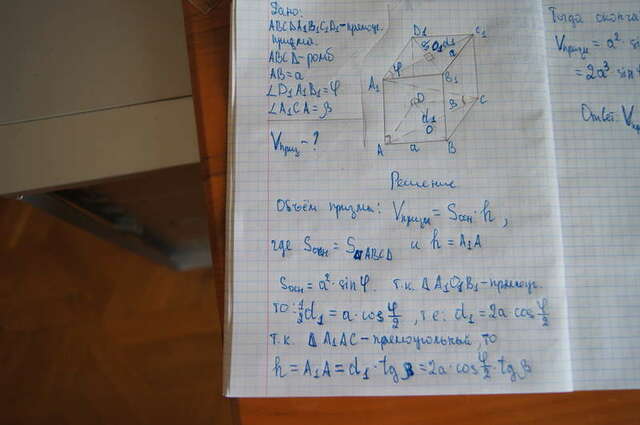 Дано:
ABCDA₁B₁C₁D₁-прямоуг.
призма.
ABCD-ромб
AB=a
∠D₁A₁B₁=φ
∠A₁CA=β
Vприз-?
D₁ C₁
90 O₁ d₁
φ a
A₁ B₁
D β C
d₁
O
A a B
Решение
Объём призмы: Vпризм = Sосн·h,
где Sосн = SABCD и h = A₁A
Sосн = a²·sin φ. т.к. Δ A₁O₁B₁-прямоуг.
то: 1/2 d₁ = a·cos φ/2, т.е: d₁ = 2a cos φ/2
т.к. Δ A₁AC-прямоугольный, то
h = A₁A = d₁·tg β = 2a·cos φ/2·tg β
Тогда
Vпризм = a²·
= 2a³·sin
Ответ: